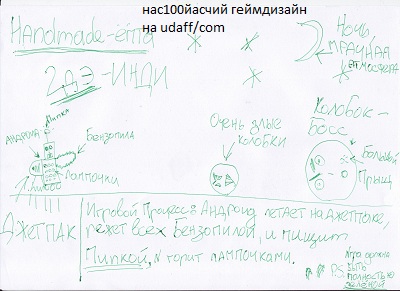 нас100йасчий геймдизайн
на udaff/com
Handmade-ёпта
2дэ-инди
Ночь,
мрачная
атмосфера
Андроид
Пипка
Бензопила
Лампочки
Очень злые
колобки
Колобок-
Босс
Большой
Прыщ
Джетпак
Игровой Процесс: Андроид летает на джетпаке,
режет всех Бензопилой, и пищит
Пипкой, и горит лампочками.
P.S. Игра должна
быть
полностью
зелёной